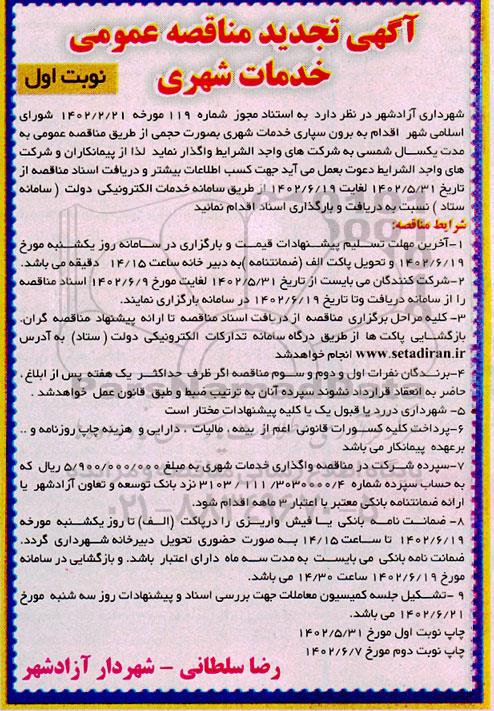 آگهی تجدید مناقصه عمومی
خدمات شهری
نوبت اول
شهرداری آزادشهر در نظر دارد به استناد مجوز شماره ۱۱۹ مورخه ۱۴۰۲/۲/۲۱ شورای
اسلامی شهر اقدام به برون سپاری خدمات شهری بصورت حجمی از طریق مناقصه عمومی به
مدت یکسال شمسی به شرکت های واجد الشرایط واگذار نماید لذا از پیمانکاران و شرکت
های واجد الشرایط دعوت بعمل می آید جهت کسب اطلاعات بیشتر و دریافت اسناد مناقصه از
تاریخ ۱۴۰۲/۵/۳۱ لغایت ۱۴۰۲/۶/۱۹ از طریق سامانه خدمات الکترونیکی دولت ( سامانه
ستاد ) نسبت به دریافت و بارگذاری اسناد اقدام نمایند
شرایط مناقصه:
۱-آخرین مهلت تسلیم پیشنهادات قیمت و بارگزاری در سامانه روز یکشنبه مورخ
۱۴۰۲/۶/۱۹ و تحویل پاکت الف (ضمانتنامه )به دبیر خانه ساعت ۱۴/۱۵ دقیقه می باشد.
۲-شرکت کنندگان می بایست از تاریخ ۱۴۰۲/۵/۳۱ لغایت مورخ ۱۴۰۲/۶/۹ اسناد مناقصه
را از سامانه دریافت وتا تاریخ ۱۴۰۲/۶/۱۹ در سامانه بارگزاری نمایند.
۳-کلیه مراحل برگزاری مناقصه از دریافت اسناد مناقصه تا ارائه پیشنهاد مناقصه گران.
بازگشایی پاکت ها از طریق درگاه سامانه تدارکات الکترونیکی دولت ( ستاد) به آدرس
www.setadiran.ir انجام خواهدشد
۴-برندگان نفرات اول و دوم و سوم مناقصه اگر ظرف حداکثر یک هفته پس از ابلاغ ،
حاضر به انعقاد قرارداد نشوند سپرده آنان به ترتیب ضبط و طبق قانون عمل خواهدشد .
۵- شهرداری دررد یا قبول یک یا کلیه پیشنهادات مختار است
۶-پرداخت کلیه کسورات قانونی اعم از بیمه ، مالیات ، دارایی و هزینه چاپ روزنامه و ..
برعهده پیمانکار می باشد
۷-سپرده شرکت در مناقصه واگذاری خدمات شهری به مبلغ ۵/۹۰۰/۰۰۰/۰۰۰ ریال که
به حساب سپرده شماره ۳۱۰۳/۱۱۱/۳۰۳۰۰۰۰/۴ نزد بانک توسعه و تعاون آزادشهر یا
ارائه ضمانتنامه بانکی معتبر با اعتبار ۳ ماهه اقدام شود.
۸- ضمانت نامه بانکی یا فیش واریزی را درپاکت (الف) تا روز یکشنبه مورخه
۱۴۰۲/۶/۱۹ تا ساعت ۱۴/۱۵ به صورت حضوری تحویل دبیرخانه شهرداری گردد.
ضمانت نامه بانکی می بایست به مدت سه ماه دارای اعتبار باشد. و بازگشایی در سامانه
مورخ ۱۴۰۲/۶/۱۹ ساعت ۱۴/۳۰ می باشد.
۹ -تشکیل جلسه کمیسیون معاملات جهت بررسی اسناد و پیشنهادات روز سه شنبه مورخ
۱۴۰۲/۶/۲۱ می باشد.
چاپ نوبت اول مورخ ۱۴۰۲/۵/۳۱
چاپ نوبت دوم مورخ ۱۴۰۲/۶/۷
رضا سلطانی - شهردار آزادشهر